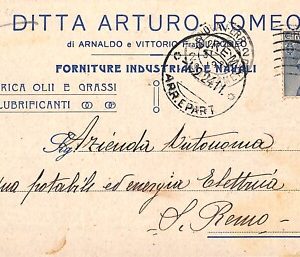 DITTA ARTURO ROMEO
di ARNALDO e VITTORIO Fra.lli ROMEO
FORNITURE INDUSTRIALI E NAVALI
RICA OLII E GRASSI
LUBRIFICANTI
ARR. E PART
Azienda Autonoma
ua potabile ed energia Elettrica
S. Remo